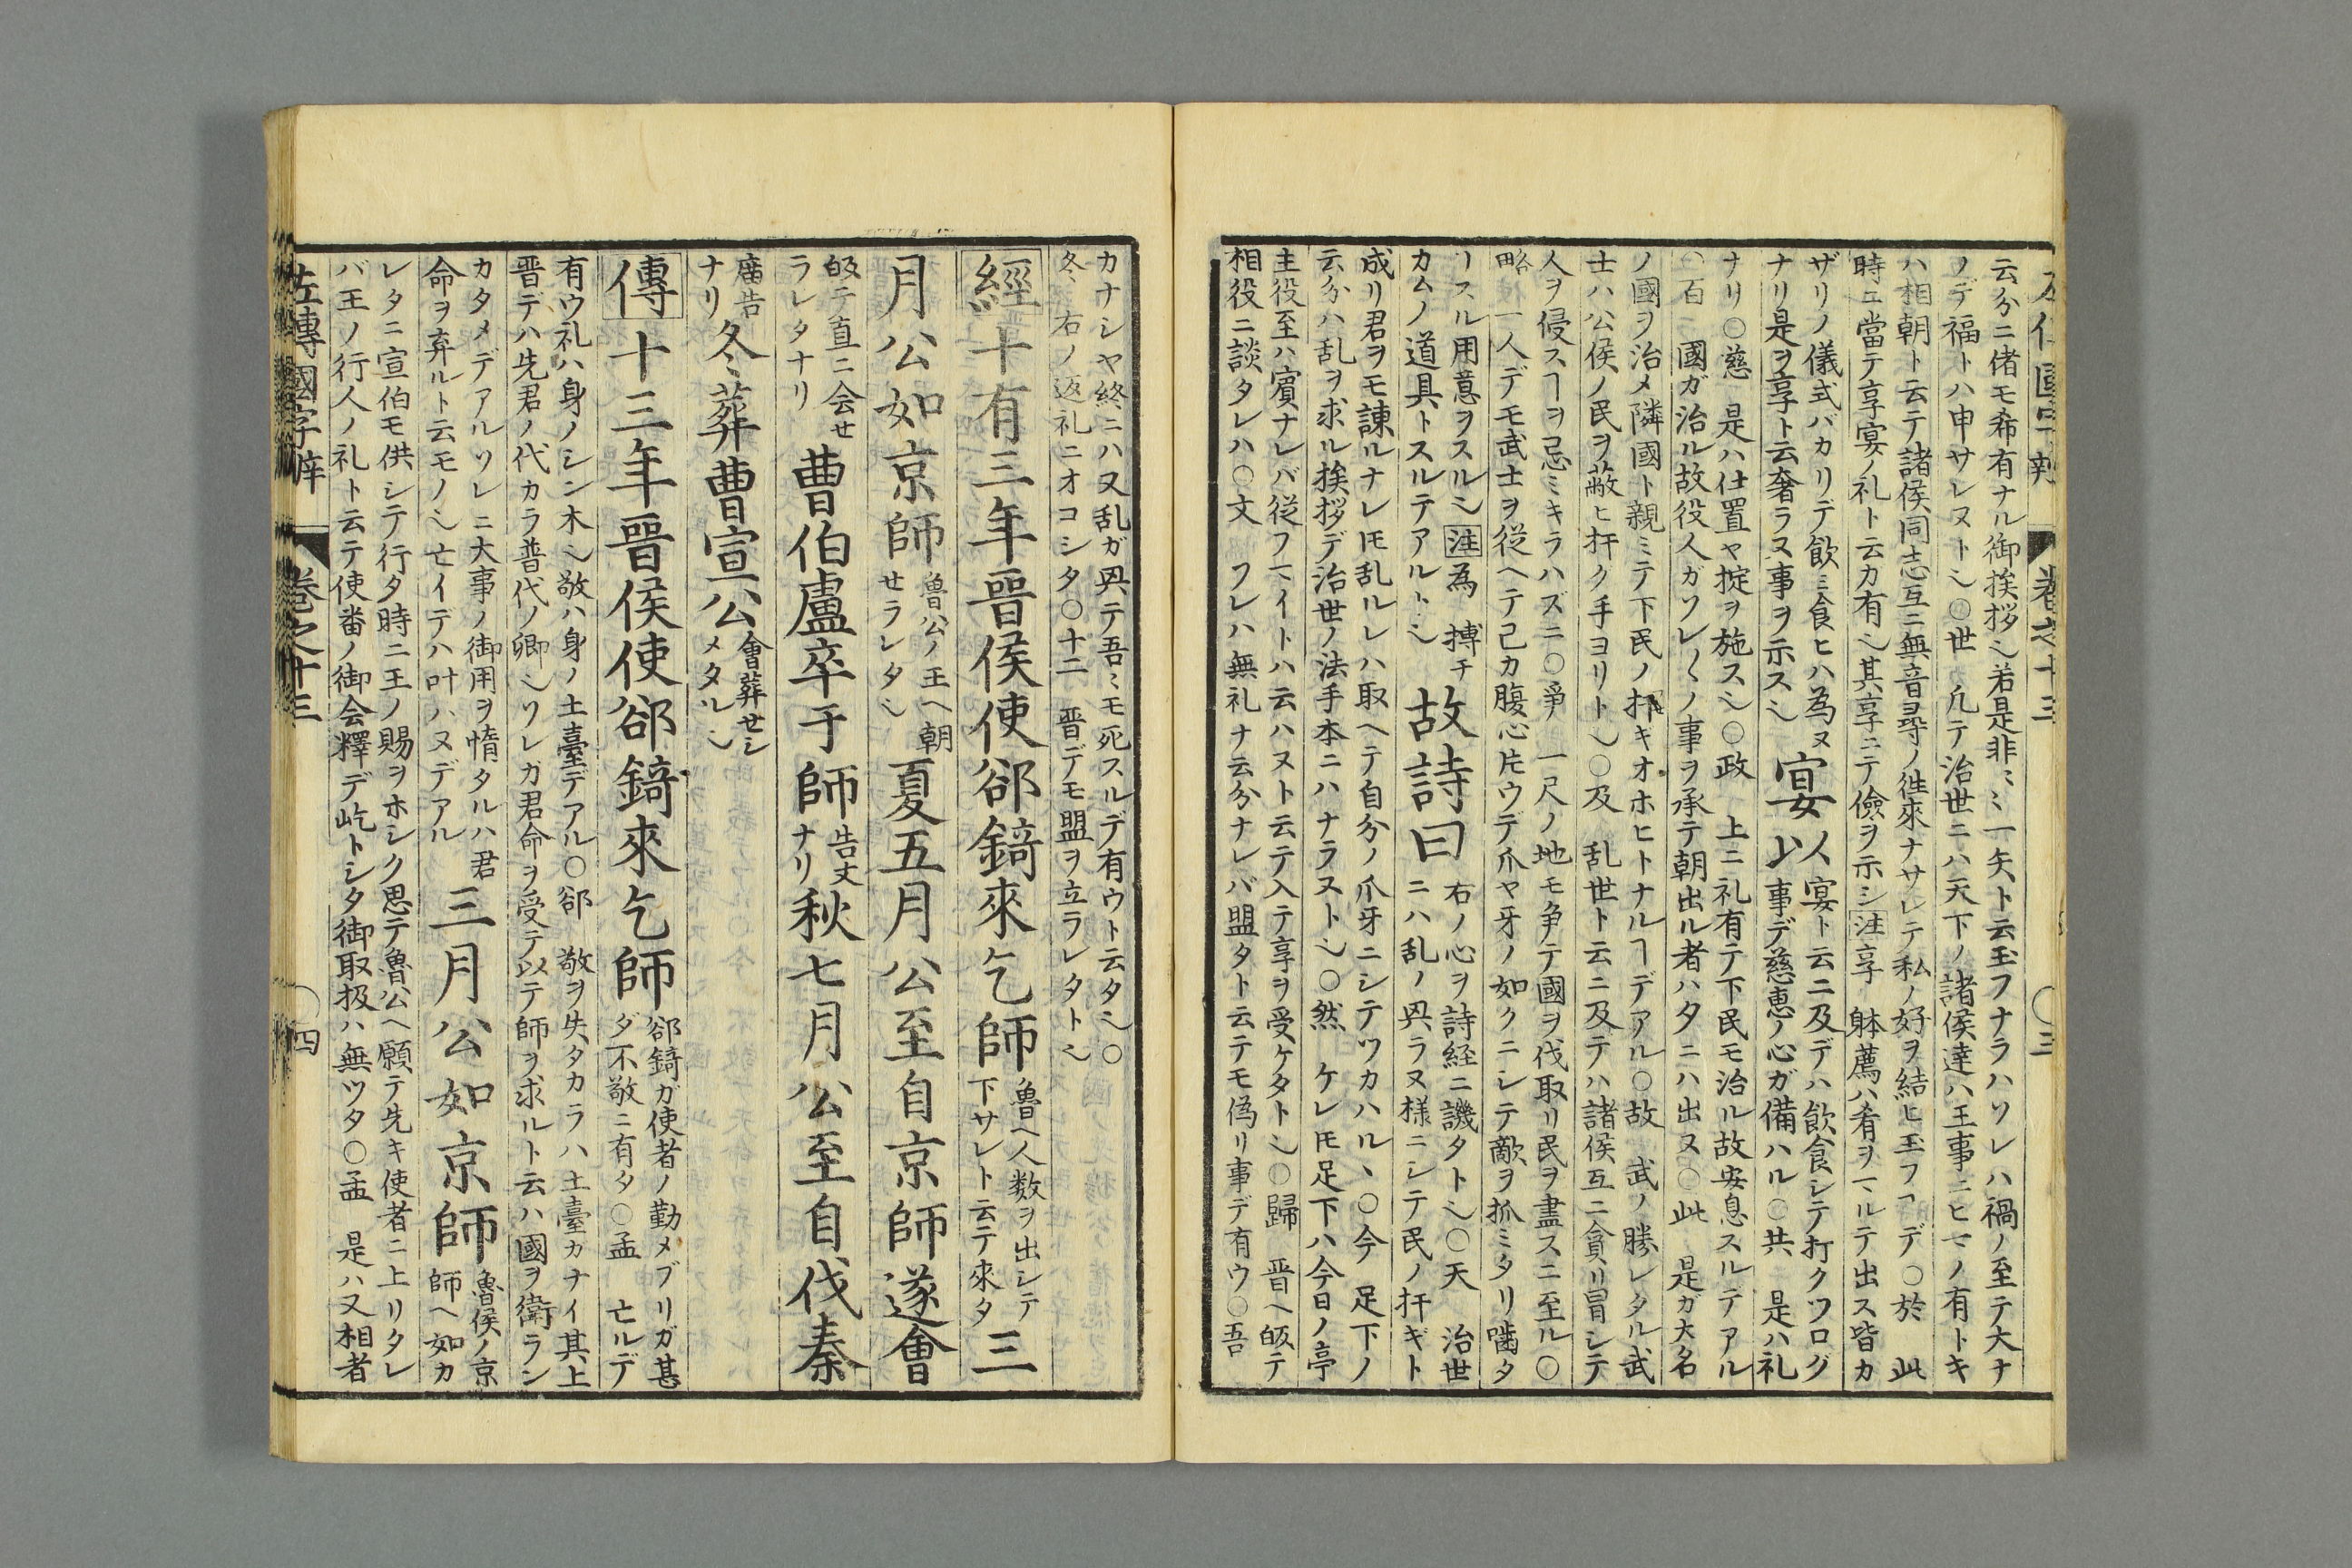 云分ニ偖モ希有ナル御挨拶〻若是非〻〻一矢ト云玉フナラハソレハ禍ノ至テ大ナ
ノデ福トハ申サレヌト〻〇世 凡テ治世ニハ天下ノ諸侯達ハ王事ニヒマノ有トキ
ハ相朝ト云テ諸侯同志互ニ無音尋ノ徃來ナサレテ私ノ好ヲ結ヒ玉フヿデ〇於 此
時ニ當テ享宴ノ礼ト云カ有〻其享ニテ儉ヲ示シ注享 躰薦ハ肴ヲマルテ出ス皆カ
ザリノ儀式バカリデ飲ミ食ヒハ為ヌ
ナリ是ヲ享ト云奢ラヌ事ヲ示ス〻
宴以
宴ト云ニ及デハ飲食シテ打クツログ
事デ慈恵ノ心ガ備ハル〇共 是ハ礼
ナリ〇慈 是ハ仕置ヤ掟ヲ施ス〻〇政 上ニ礼有テ下民モ治ル故安息スルテアル
〇百 國ガ治ル故役人ガソレ〱ノ事ヲ承テ朝出ル者ハタニハ出ヌ〇此 是ガ大名
ノ國ヲ治メ隣國ト親ミテ下民ノ扞ギオホヒトナルヿデアル〇故 武ノ勝レタル武
士ハ公侯ノ民ヲ蔽ヒ扞ク手ヨリト〻〇及 乱世ト云ニ及デハ諸侯互ニ貪リ冒シテ
人ヲ侵スヿヲ忌ミキラハズニ〇爭 一尺ノ地モ争テ國ヲ伐取リ民ヲ盡スニ至ル〇
略 一人デモ武士ヲ従ヘテ己カ腹心片ウデ爪ヤ牙ノ如クニシテ敵ヲ抓ミタリ噛タ
ヿスル用意ヲスル〻注為 摶チ
カムノ道具トスルテアルト〻
故詩曰
右ノ心ヲ詩経ニ譏タト〻〇天 治世
ニハ乱ノ與ラヌ様ニシテ民ノ扞ギト
成リ君ヲモ諌ルナレ𪜈乱ルレハ取ヘテ自分ノ爪牙ニシテツカハルヽ〇今 足下ノ
云分ハ乱ヲ求ル挨拶デ治世ノ法手本ニハナラヌト〻〇然 ケレ𪜈足下ハ今日ノ亭
主役至ハ賓ナレバ従フマイトハ云ハヌト云テ入テ享ヲ受ケタト〻〇歸 晋ヘ皈テ
相役ニ談タレハ〇文 フレハ無礼ナ云分ナレバ盟タト云テモ偽リ事デ有ウ〇吾
卷之十三
〇三
カナシヤ終ニハ又乱ガ興テ吾〻モ死スルデ有ウト云タ〻〇
冬 右ノ返礼ニオコシタ〇十二 晋デモ盟ヲ立ラレタト〻
經十有三年晉侯使郤錡來乞師
魯ヘ人数ヲ出シテ
下サレト云テ來タ
三
月公如京師
魯公ノ王ヘ朝
セラレタ〻
夏五月公至自京師遂會
皈テ直ニ会セ
ラレタナリ
曹伯盧卒于師
告文
ナリ
秋七月公至自伐秦
廣告
ナリ
冬葬曹宣公
會葬セシ
メタル〻
傳十三年晉侯使郤錡來乞師
郤錡ガ使者ノ勤メブリガ甚
ダ不敬ニ有タ〇孟 亡ルデ
有ウ礼ハ身ノシン木〻敬ハ身ノ土臺デアル〇郤 敬ヲ失タカラハ土臺カナイ其上
晋デハ先君ノ代カラ普代ノ卿〻ソレガ君命ヲ受テ以テ師ヲ求ルト云ハ國ヲ衛ラン
カタメデアルソレニ大事ノ御用ヲ惰タルハ君
命ヲ弃ルト云モノ〻亡イデハ叶ハヌデアル
三月公如京師
魯侯ノ京
師ヘ如カ
レタニ宣伯モ供シテ行タ時ニ王ノ賜ヲホシク思テ魯公ヘ願テ先キ使者ニ上リタレ
バ王ノ行人ノ礼ト云テ使番ノ御会釋デ屹トシタ御取扱ハ無ツタ〇孟 是ハ又相者
左傳國字辯
卷之十三
〇四